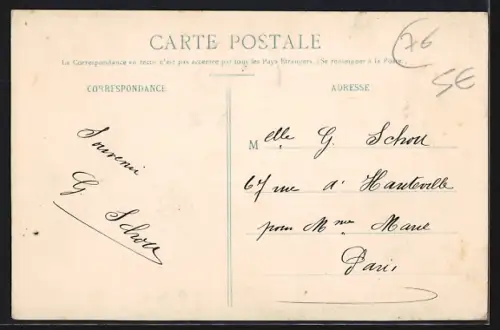 CARTE POSTALE
La Correspondance au recto n'est pas acceptée par tous les Pays Étrangers. (Se renseigner à la Poste)
CORRESPONDANCE
ADRESSE
76
5€
Souvenir
G Schou
Melle G. Schou
67 rue d'Hauteville
pour Mme Marie
Paris